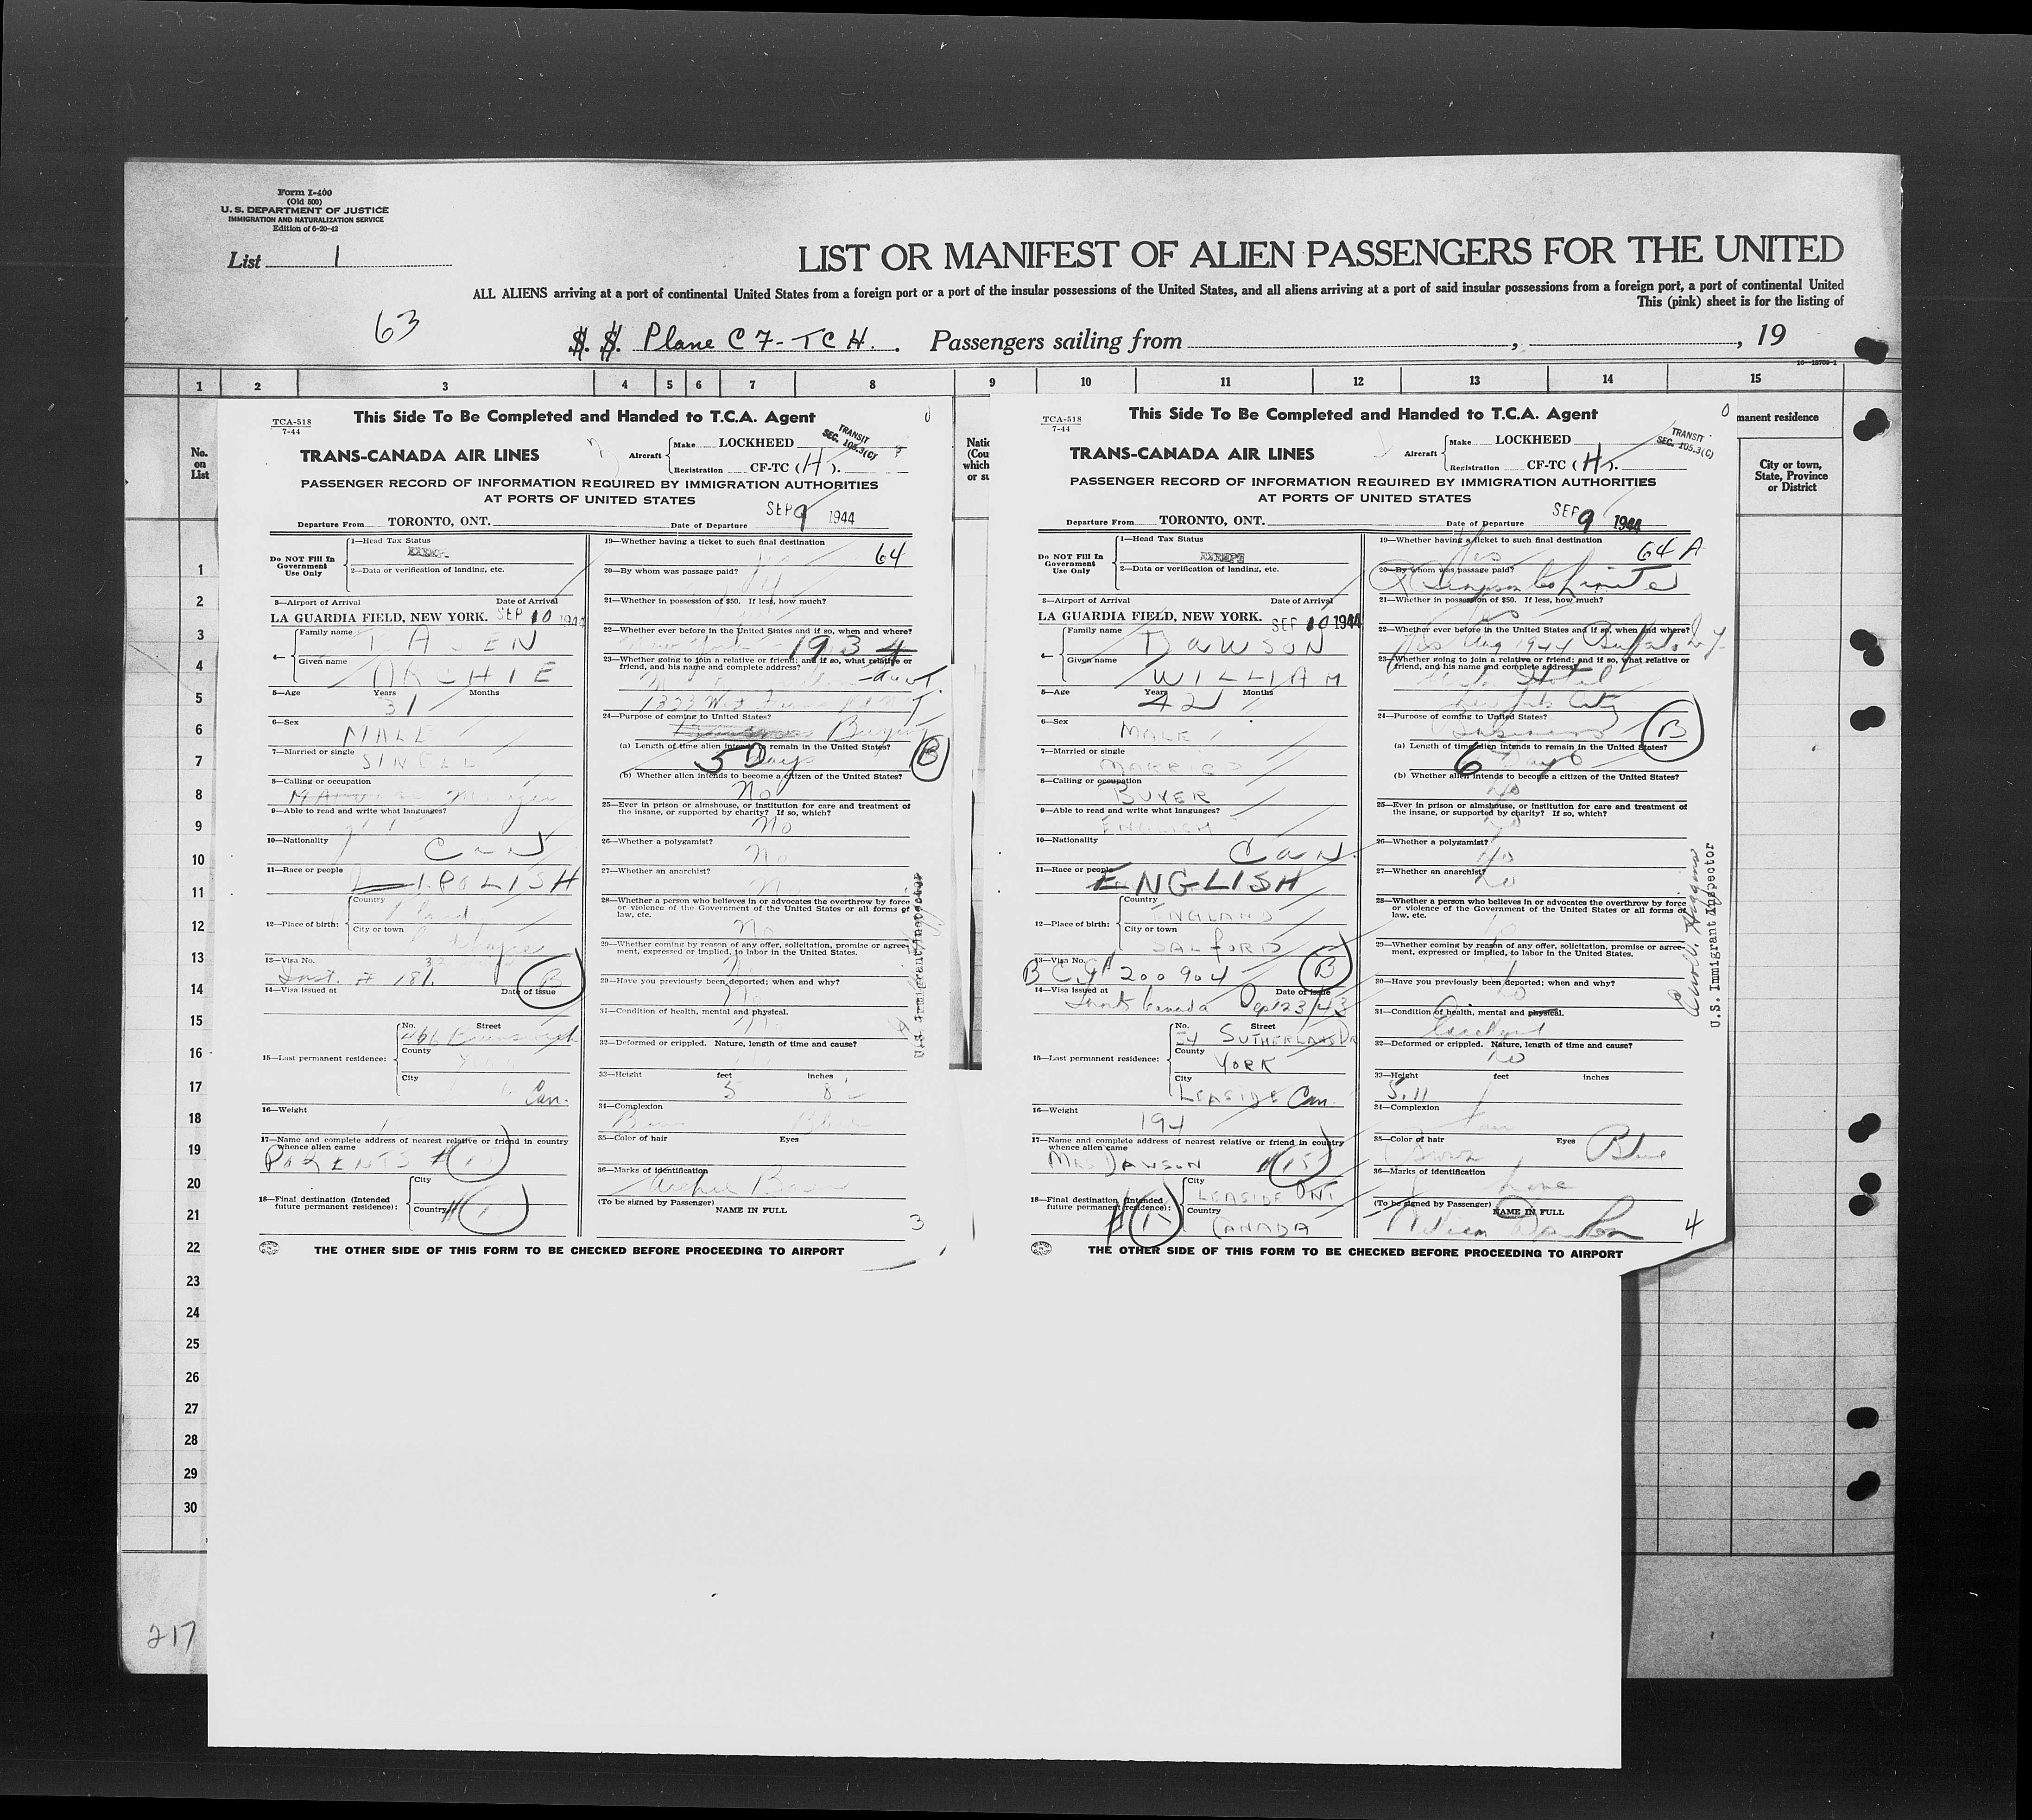 Form I-400
(Old 500)
U. S. DEPARTMENT OF JUSTICE
IMMIGRATION AND NATURALIZATION SERVICE
Edition of 6-20-42
List 1
LIST OR MANIFEST OF ALIEN PASSENGERS FOR THE UNITED
ALL ALIENS arriving at a port of continental United States from a foreign port or a port of the insular possessions of the United States, and all aliens arriving at a port of said insular possessions from a foreign port, a port of continental United
This (pink) sheet is for the listing of
63
S. S. Plane C F-TCH. Passengers sailing from , , 19
1 2 3 4 5 6 7 8 9 10 11 12 13 14 15
No.
on
List
manent residence
City or town,
State, Province
or District
TCA-518
7-44
This Side To Be Completed and Handed to T.C.A. Agent
TRANSIT
SEC. 105.3(C)
TRANS-CANADA AIR LINES
Aircraft
Make LOCKHEED
Registration CF-TC (H).
PASSENGER RECORD OF INFORMATION REQUIRED BY IMMIGRATION AUTHORITIES
AT PORTS OF UNITED STATES
Departure From TORONTO, ONT. Date of Departure SEP 9 1944
Do NOT Fill In
Government
Use Only
1—Head Tax Status
EXEMPT
2—Data or verification of landing, etc.
3—Airport of Arrival Date of Arrival
LA GUARDIA FIELD, NEW YORK. SEP 10 1944
4—
Family name
Given name
ARCHIE
5—Age Years Months
31
6—Sex
MALE
7—Married or single
SINGLE
8—Calling or occupation
Manager
9—Able to read and write what languages?
10—Nationality
Can
11—Race or people
POLISH
12—Place of birth:
Country
City or town
13—Visa No.
Inst. # 181.
B
14—Visa issued at Date of issue
15—Last permanent residence:
No. Street
Brunswick
County
City
Can.
16—Weight
17—Name and complete address of nearest relative or friend in country
whence alien came
PARENTS # 15
18—Final destination (Intended
future permanent residence):
City
Country
19—Whether having a ticket to such final destination
64
20—By whom was passage paid?
21—Whether in possession of $50. If less, how much?
22—Whether ever before in the United States and if so, when and where?
New York 1934
23—Whether going to join a relative or friend; and if so, what relative or
friend, and his name and complete address?
24—Purpose of coming to United States?
Buying
(a) Length of time alien intends to remain in the United States?
5 Days
B
(b) Whether alien intends to become a citizen of the United States?
No
25—Ever in prison or almshouse, or institution for care and treatment of
the insane, or supported by charity? If so, which?
No
26—Whether a polygamist?
No
27—Whether an anarchist?
No
28—Whether a person who believes in or advocates the overthrow by force
or violence of the Government of the United States or all forms of
law, etc.
No
29—Whether coming by reason of any offer, solicitation, promise or agree-
ment, expressed or implied, to labor in the United States.
30—Have you previously been deported; when and why?
No
31—Condition of health, mental and physical.
32—Deformed or crippled. Nature, length of time and cause?
33—Height feet inches
5 8½
34—Complexion
35—Color of hair Eyes
36—Marks of identification
Archie
(To be signed by Passenger)
NAME IN FULL
3
U.S. Immigrant Inspector
THE OTHER SIDE OF THIS FORM TO BE CHECKED BEFORE PROCEEDING TO AIRPORT
TCA-518
7-44
This Side To Be Completed and Handed to T.C.A. Agent
TRANSIT
SEC. 105.3(C)
TRANS-CANADA AIR LINES
Aircraft
Make LOCKHEED
Registration CF-TC (H).
PASSENGER RECORD OF INFORMATION REQUIRED BY IMMIGRATION AUTHORITIES
AT PORTS OF UNITED STATES
Departure From TORONTO, ONT. Date of Departure SEP 9 1944
Do NOT Fill In
Government
Use Only
1—Head Tax Status
EXEMPT
2—Data or verification of landing, etc.
3—Airport of Arrival Date of Arrival
LA GUARDIA FIELD, NEW YORK. SEP 10 1944
4—
Family name
DAWSON
Given name
WILLIAM
5—Age Years Months
42
6—Sex
MALE
7—Married or single
MARRIED
8—Calling or occupation
BUYER
9—Able to read and write what languages?
ENGLISH
10—Nationality
Can.
11—Race or people
ENGLISH
12—Place of birth:
Country
ENGLAND
City or town
SALFORD
13—Visa No.
B C.I# 200904
B
14—Visa issued at Date of issue
Canada Sept 23/43
15—Last permanent residence:
No. Street
54 SUTHERLAND DR
County
YORK
City
LEASIDE Can.
16—Weight
194
17—Name and complete address of nearest relative or friend in country
whence alien came
MRS DAWSON # 15
18—Final destination (Intended
future permanent residence):
City
LEASIDE ONT
Country
CANADA
19—Whether having a ticket to such final destination
Yes
64 A
20—By whom was passage paid?
R Simpson Co Limited
21—Whether in possession of $50. If less, how much?
Yes
22—Whether ever before in the United States and if so, when and where?
Yes Aug 1944 Buffalo N.Y.
23—Whether going to join a relative or friend; and if so, what relative or
friend, and his name and complete address?
Hotel
New York City
24—Purpose of coming to United States?
Business
B
(a) Length of time alien intends to remain in the United States?
6 Days
(b) Whether alien intends to become a citizen of the United States?
No
25—Ever in prison or almshouse, or institution for care and treatment of
the insane, or supported by charity? If so, which?
No
26—Whether a polygamist?
No
27—Whether an anarchist?
No
28—Whether a person who believes in or advocates the overthrow by force
or violence of the Government of the United States or all forms of
law, etc.
No
29—Whether coming by reason of any offer, solicitation, promise or agree-
ment, expressed or implied, to labor in the United States.
30—Have you previously been deported; when and why?
No
31—Condition of health, mental and physical.
Excellent
32—Deformed or crippled. Nature, length of time and cause?
No
33—Height feet inches
5.11
34—Complexion
Fair
35—Color of hair Eyes
Brown Blue
36—Marks of identification
None
(To be signed by Passenger)
NAME IN FULL
William Dawson
4
U.S. Immigrant Inspector
THE OTHER SIDE OF THIS FORM TO BE CHECKED BEFORE PROCEEDING TO AIRPORT
1
2
3
4
5
6
7
8
9
10
11
12
13
14
15
16
17
18
19
20
21
22
23
24
25
26
27
28
29
30
217